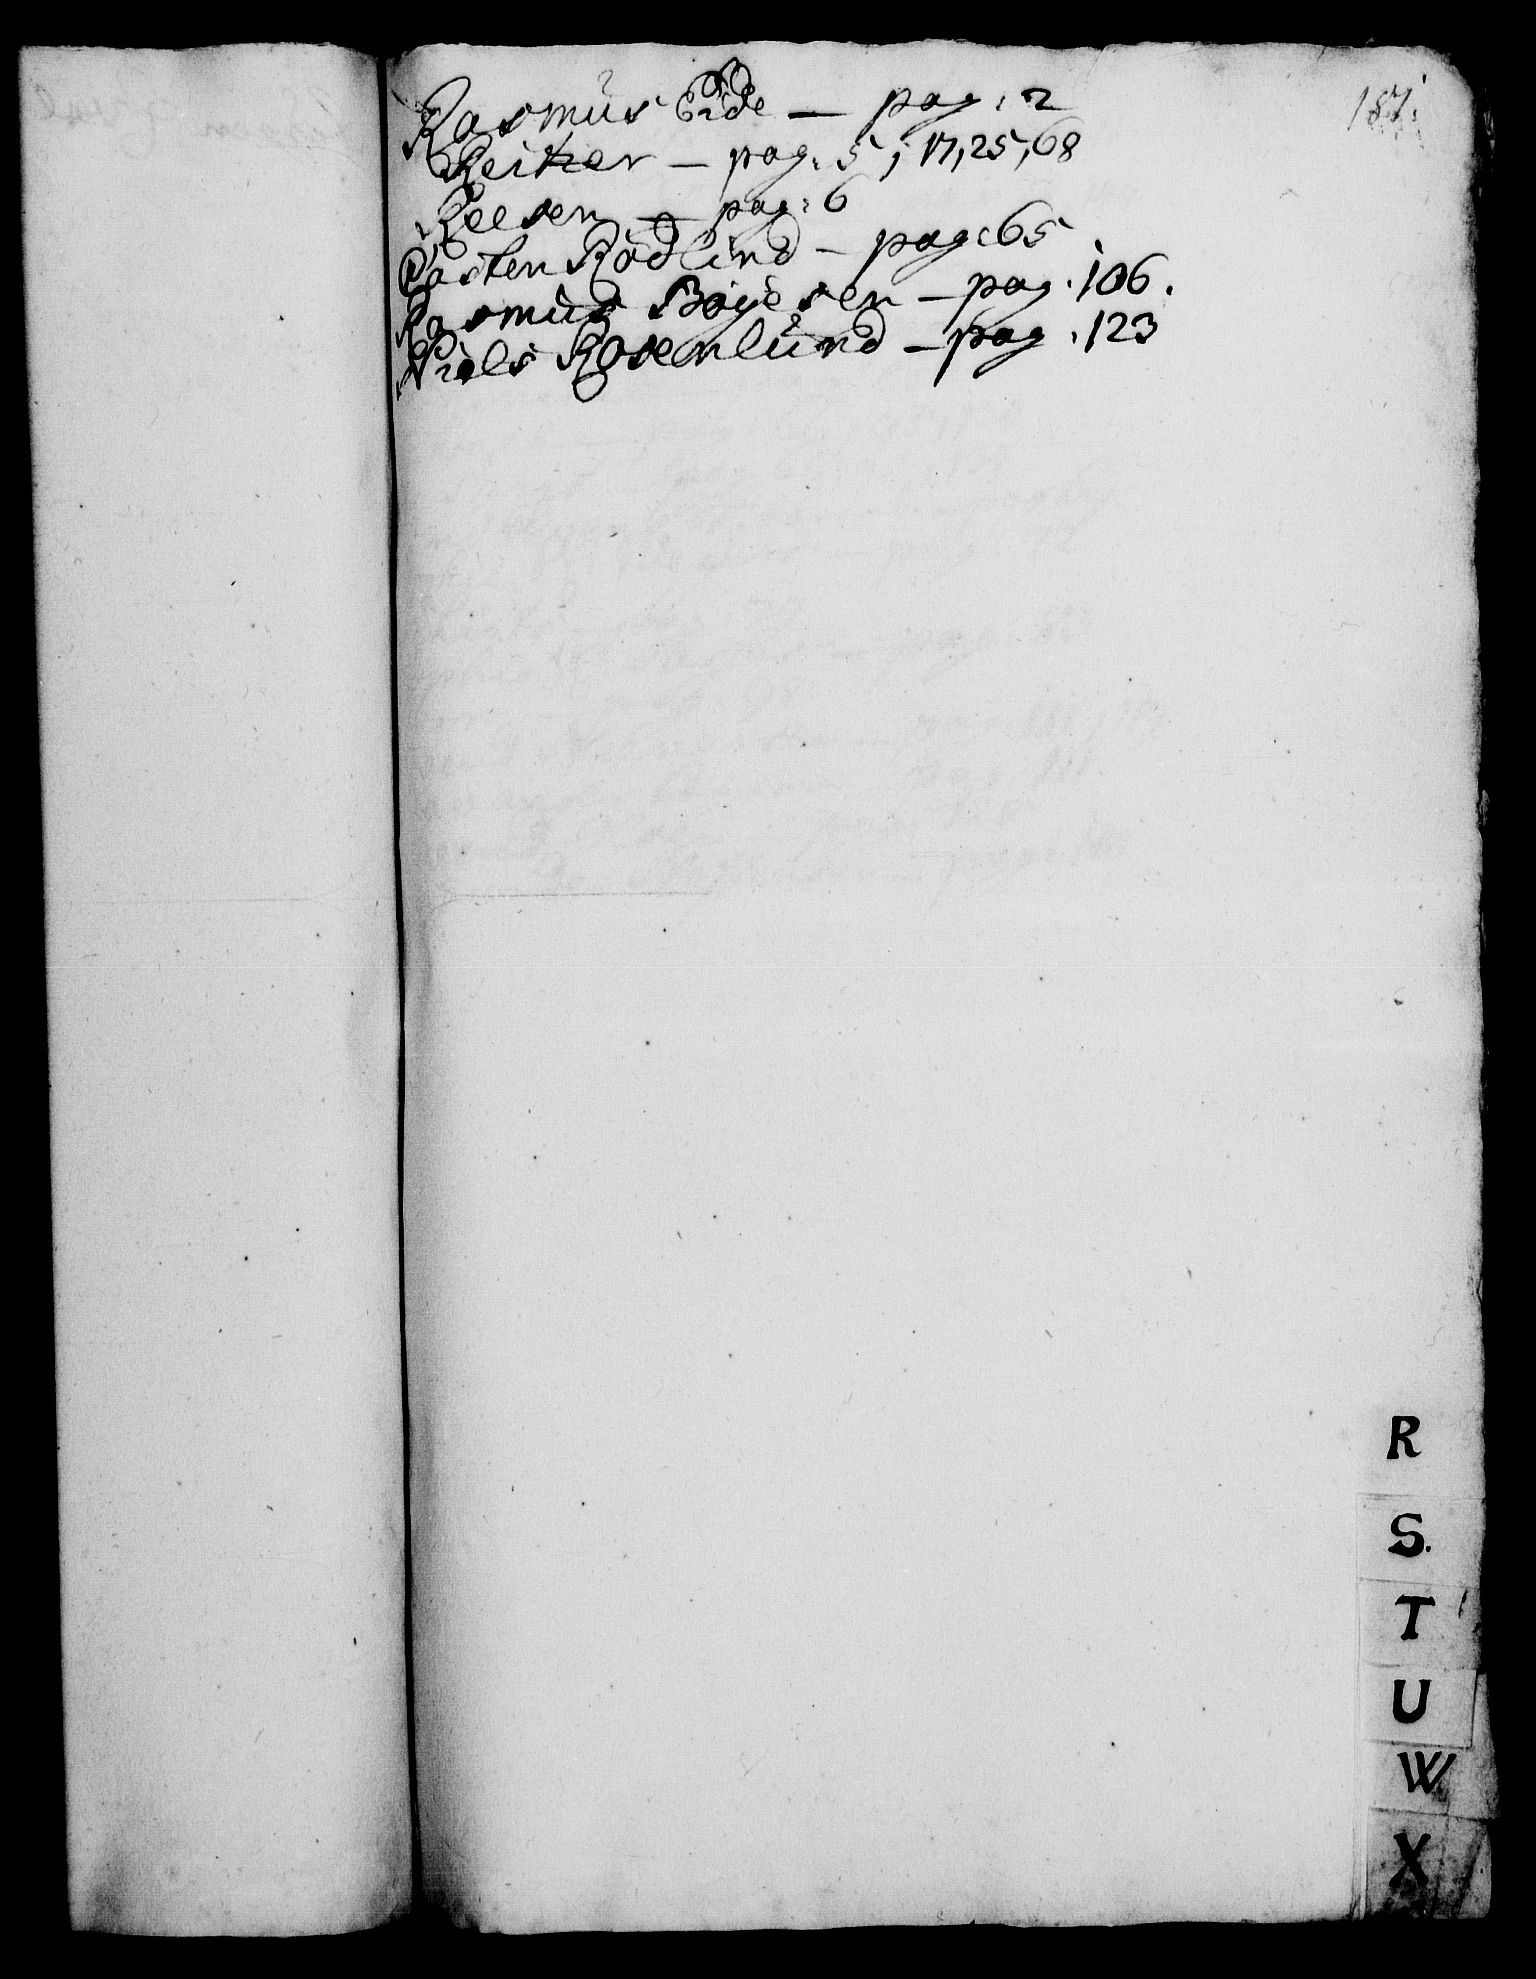 187.
Rasmus Eide — pag: 2
Reitzer — pag. 5, 17, 25, 68
Reesen — pag: 6
Carsten Rödlind — pag: 65
Rasmus Böyesen — pag. 106.
Niels Rosenlund — pag. 123
R
S.
T
U
W.
X